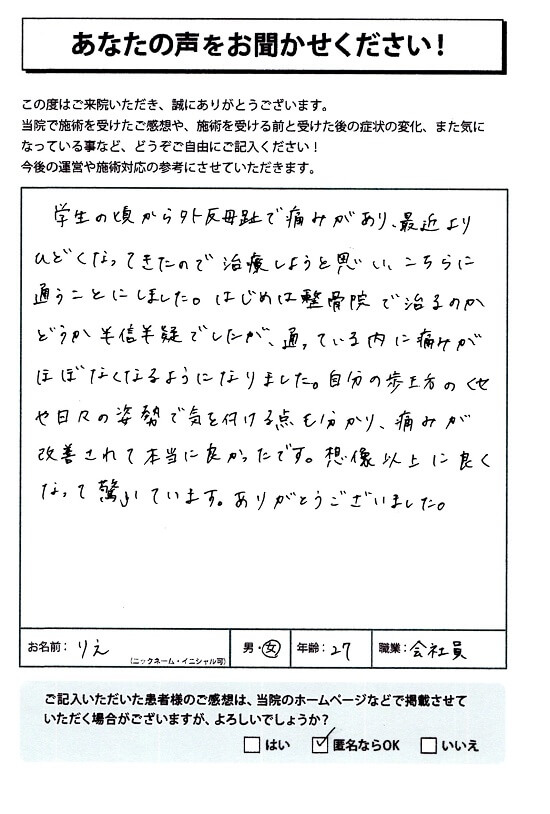 あなたの声をお聞かせください!
この度はご来院いただき、誠にありがとうございます。
当院で施術を受けたご感想や、施術を受ける前と受けた後の症状の変化、また気に
なっている事など、どうぞご自由にご記入ください!
今後の運営や施術対応の参考にさせていただきます。
学生の頃から外反母趾で痛みがあり、最近より
ひどくなってきたので治療しようと思い、こちらに
通うことにしました。はじめは整骨院で治るのか
どうか半信半疑でしたが、通っている内に痛みが
ほぼなくなるようになりました。自分の歩き方のくせ
や日々の姿勢で気を付ける点も分かり、痛みが
改善されて本当に良かったです。想像以上に良く
なって驚いています。ありがとうございました。
お名前:りえ (ニックネーム・イニシャル可) 男・女 年齢:27 職業:会社員
ご記入いただいた患者様のご感想は、当院のホームページなどで掲載させて
いただく場合がございますが、よろしいでしょうか?
はい 匿名ならOK いいえ